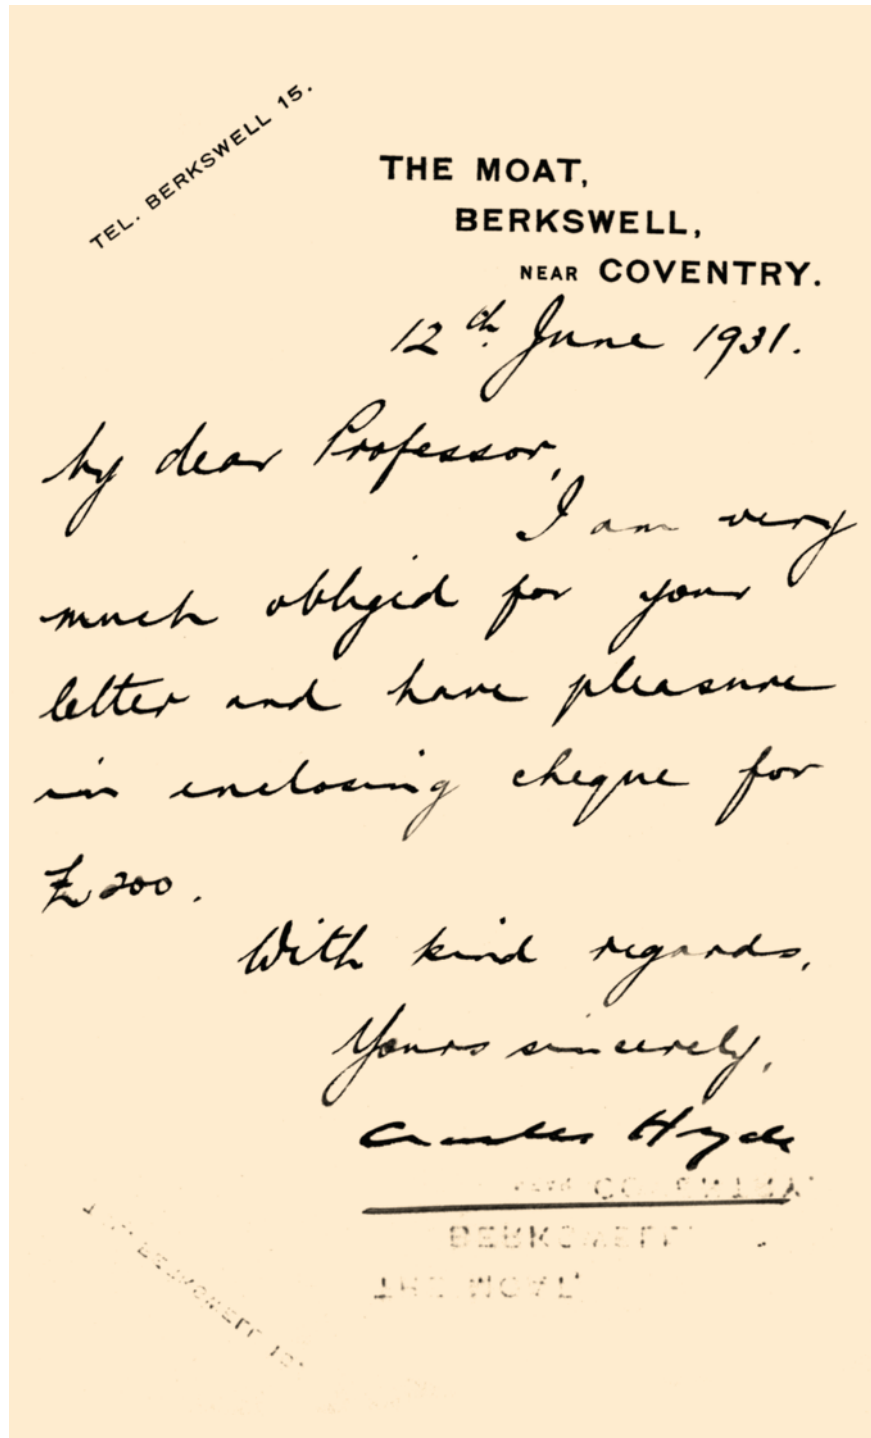 TEL. BERKSWELL 15.
THE MOAT,
BERKSWELL,
NEAR COVENTRY.
12th June 1931.
My dear Professor,
I am very
much obliged for your
letter and have pleasure
in enclosing cheque for
£200.
With kind regards,
Yours sincerely,
Charles Hyde